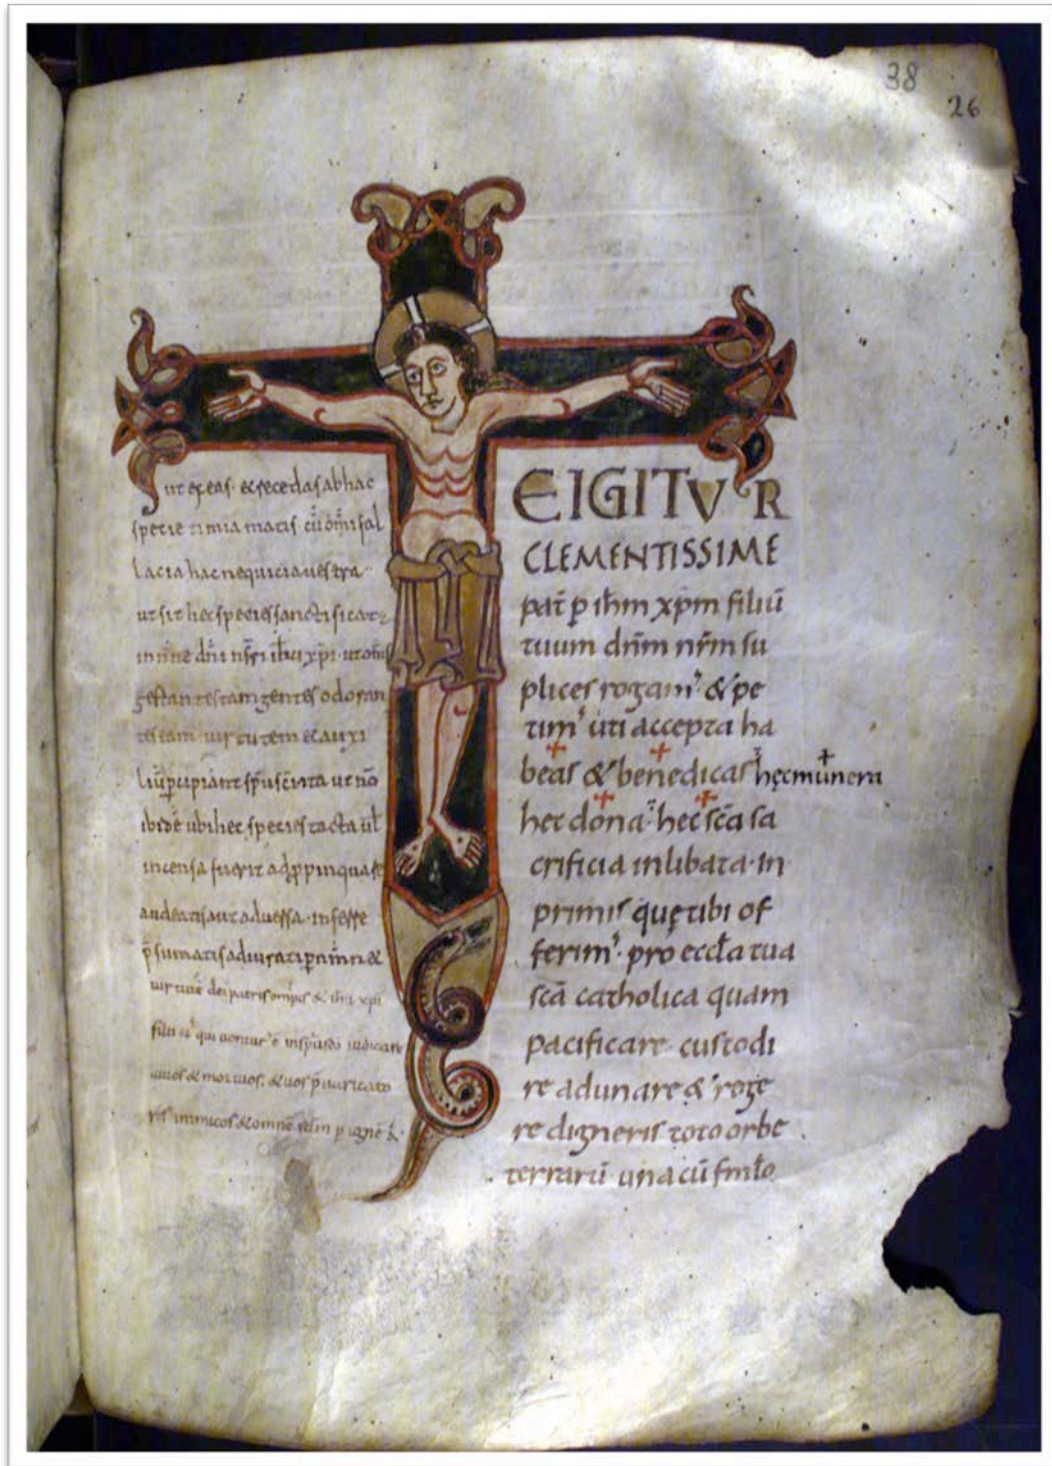 38
26
ut exeas· & recedas ab hac
specie timiamatis cū om̄i fal
lacia hac nequicia uestra
ut sit hec species sanctificata
in n̄ne dn̄i nr̄i ih̄u xp̄i· ut om̄s
gestantes tam gentes odoran
tes eam uirtutem & auxi
liū p̄cipiant sp̄u sc̄i ita ut nō
ibidē ubi hec species tacta ul̄
incensa fuerit adp̄pinquare
audeatis aut aduessa· inferre
p̄sumatis adiurati p
uirtutē dei patris omp̄s & ih̄u xp̄i
filii ei' qui uentur' ē in sp̄u sc̄o iudicare
uiuos & mortuos· & uos p̄uaricato
res inimicos & omnē sc̄lm p ignē
TEIGITVR
CLEMENTISSIME
pat̄ p ih̄m xp̄m filiū
tuum dn̄m nr̄m su
plices rogam' & pe
tim' uti accepta ha
beas & benedicas hęc munera
hec dona hec sc̄a sa
crificia inlibata· in
primis quę tibi of
ferim' pro eccl̄a tua
sc̄a catholica quam
pacificare custodi
re adunare & rege
re digneris toto orbe
terrarū una cū fml̄o